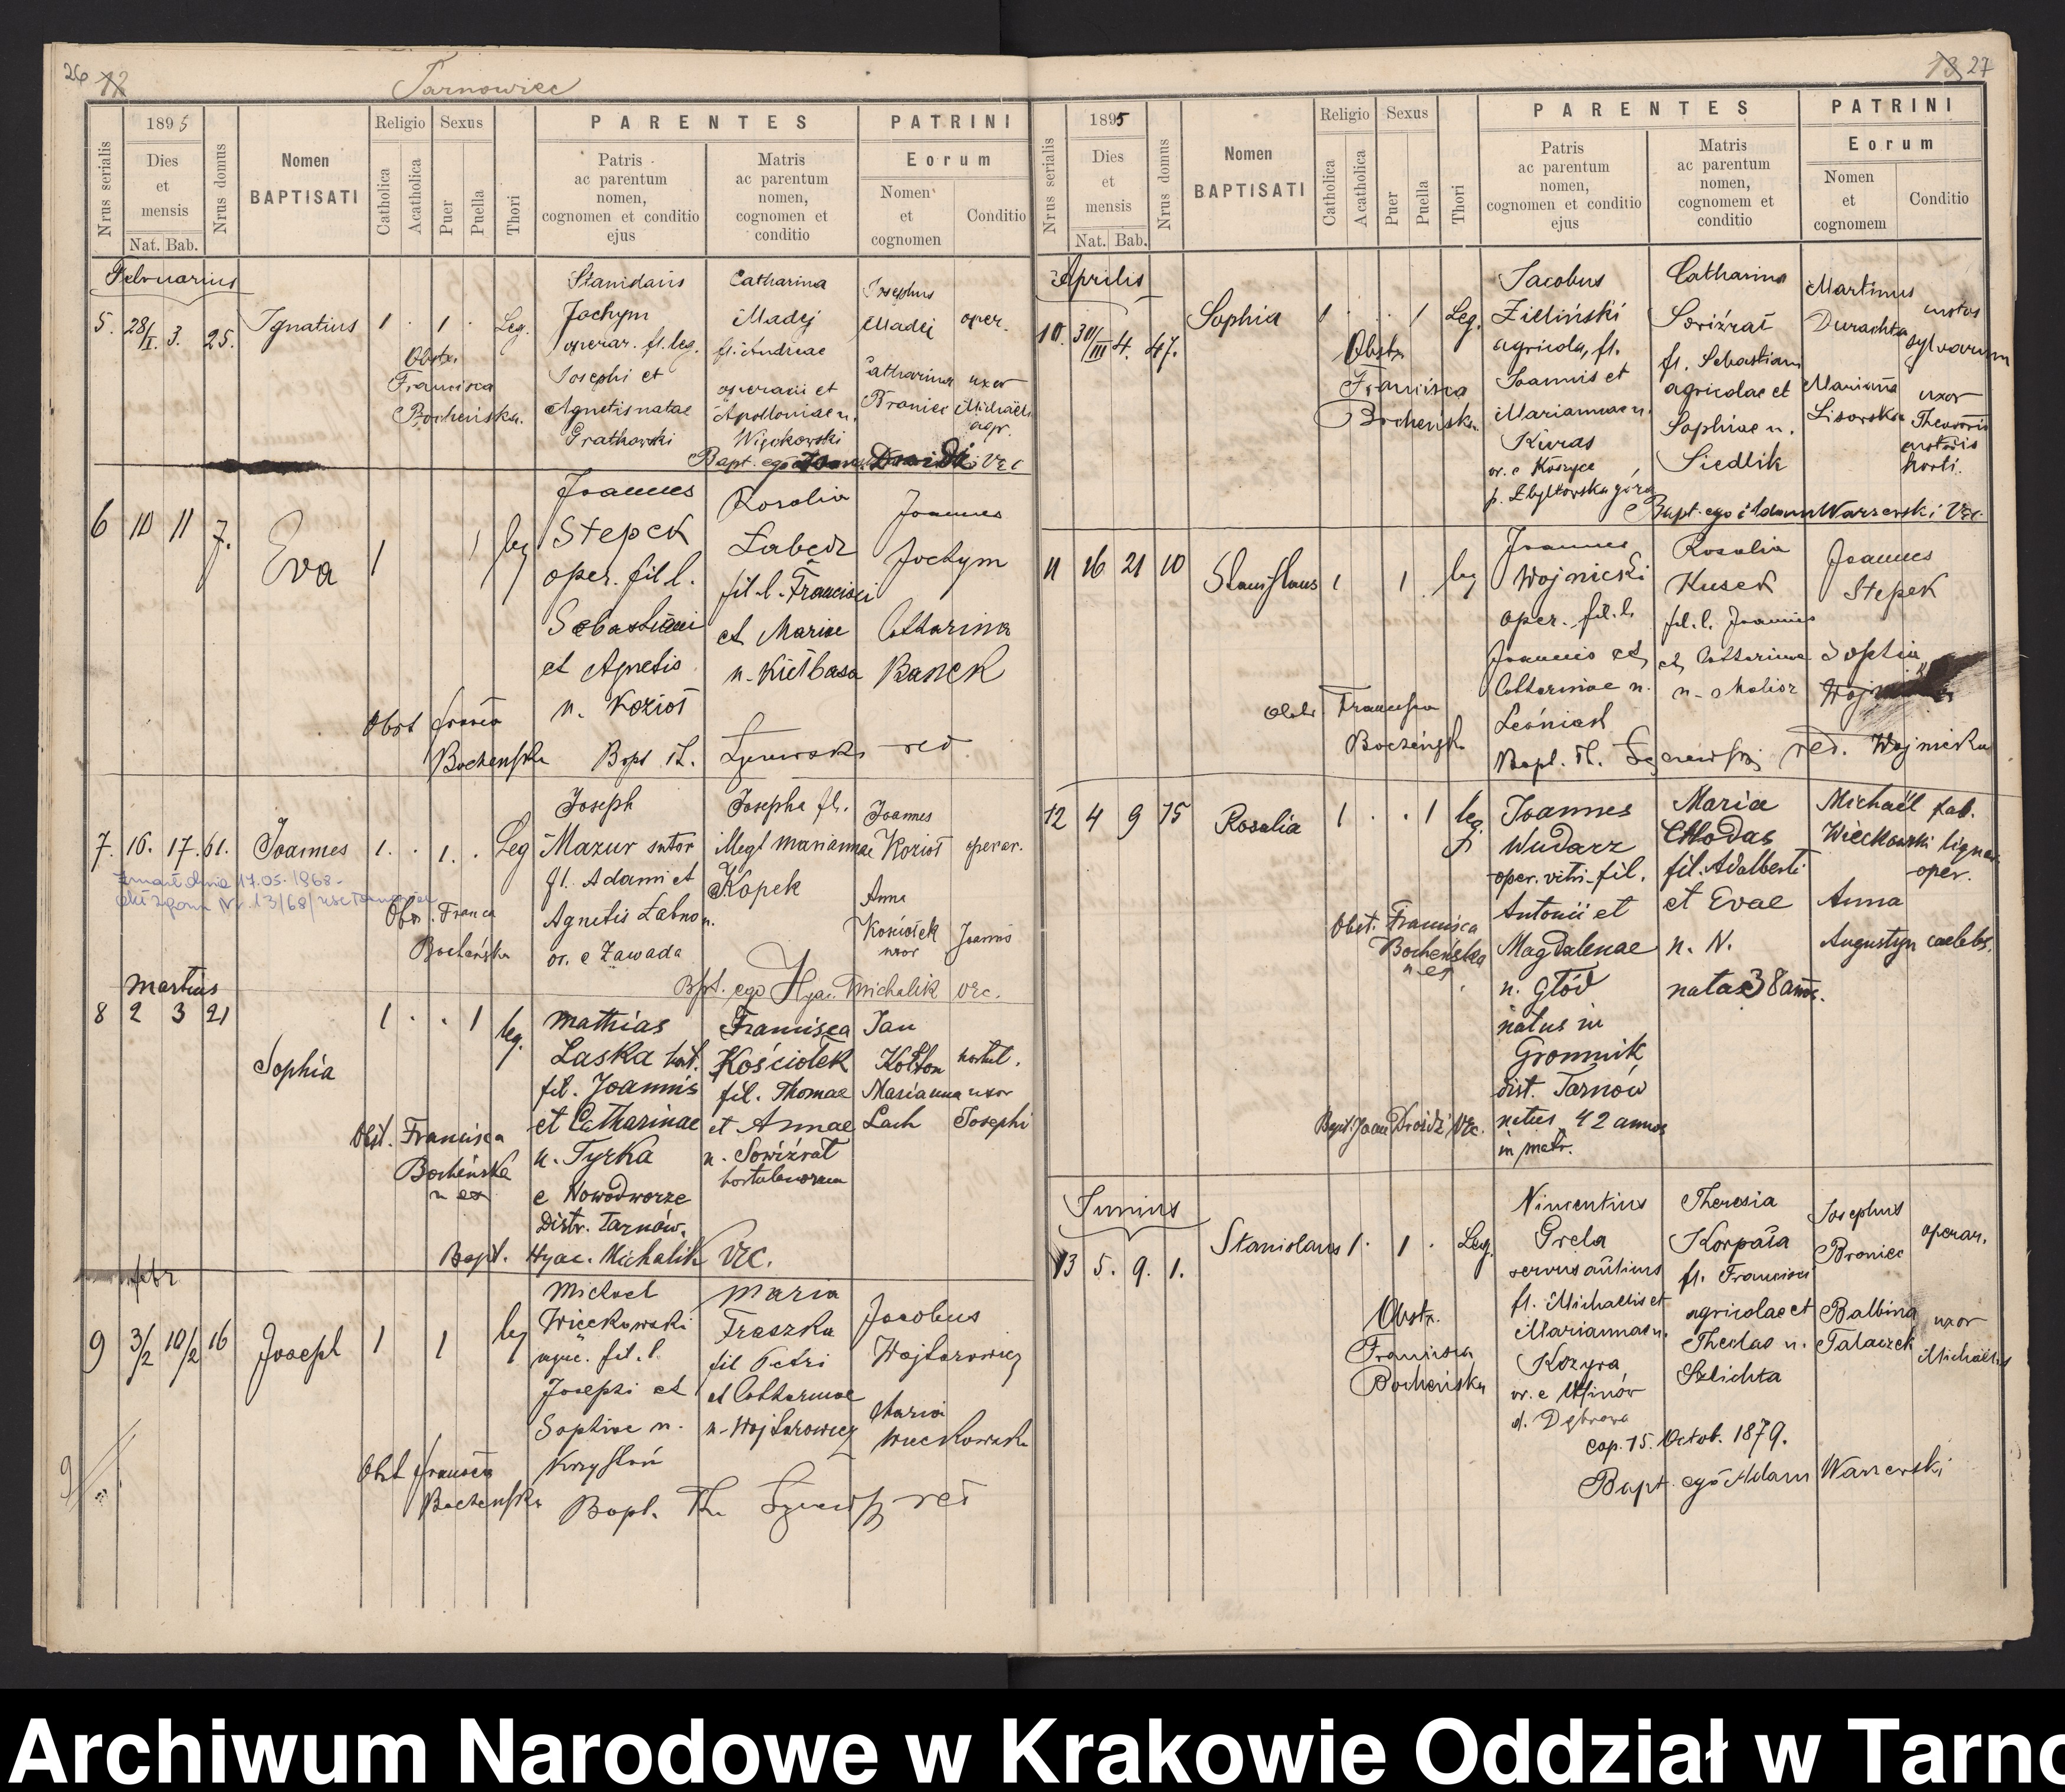 26 12
Tarnowiec
Nrus serialis
1895
Dies
et
mensis
Nat. Bab.
Nrus domus
Nomen
BAPTISATI
Religio
Catholica
Acatholica
Sexus
Puer
Puella
Thori
PARENTES
Patris
ac parentum
nomen,
cognomen et conditio
ejus
Matris
ac parentum
nomen,
cognomen et
conditio
PATRINI
Eorum
Nomen
et
cognomen
Conditio
Februarius
5. 28/I. 3. 25. Ignatius 1 . 1 . Leg.
Obstx.
Francisca
Bocheńska.
Stanislaus
Jachym
operar. fl. leg.
Josephi et
Agnetis natae
Catharina
Madej
fl. Andreae
operarii et
Apolloniae n.
Więckowski
Josephus
Madej oper.
Catharina uxor
Braniec Michaelis
agr.
Bapt. ego
6 10 11 7. Eva 1 1 leg
Joannes
Stepek
oper. fil. l.
Sebastiani
et Agnetis
n. Kozioł
Rosalia
Łabędz
fil. l. Francisci
et Mariae
n. Kiełbasa
Joannes
Jochym
Catharina
Banek
Obst
Bochenska
Bapt. red
7. 16. 17. 61. Joannes 1. . 1. . Leg
Zmarł dnia 17.05.1968
Akt zgonu Nr 13/68/usc
Obs. Franca
Bocheńska
Joseph
Mazur sutor
fl. Adami et
Agnetis Łabno
or. e Zawada
Josepha fl.
illegt Mariannae
Kopek
Joannes
Kozioł operar.
Anna
Kościołek Joannis
uxor
Bpt. ego Hyac. Michalik Vic.
Martius
8 2 3 21 1 . . 1 leg.
Sophia
Obst. Francisca
Bocheńska
n ex
Mathias
Laska hort.
fil. Joannis
et Catharinae
n. Tyrka
e Nowodworze
Distr. Tarnów.
Francisca
Kościołek
fil. Thomae
et Annae
n. Sowizrał
hortulanorum
Jan
Kołton hortul.
Marianna uxor
Lach Josephi
Bapt. Hyac. Michalik Vic.
febr
9 3/2 10/2 16 Joseph 1 1 leg
Michael
Więckowski
agric. fil. l.
Josephi et
Sophiae n.
Krzysłoń
Maria
Fraszka
fil Petri
et Catharinae
n. Wojtarowicz
Jacobus
Wojtarowicz
Maria
Wieckowska
Obst
Bochenska
Bapt. red
13 27
Nrus serialis
1895
Dies
et
mensis
Nat. Bab.
Nrus domus
Nomen
BAPTISATI
Religio
Catholica
Acatholica
Sexus
Puer
Puella
Thori
PARENTES
Patris
ac parentum
nomen,
cognomen et conditio
ejus
Matris
ac parentum
nomen,
cognomem et
conditio
PATRINI
Eorum
Nomen
et
cognomem
Conditio
Aprilis
10. 30/III 4. 47. Sophia 1 . . 1 Leg.
Obstx
Francisca
Bocheńska
Jacobus
Zieliński
agricola, fl.
Joannis et
Mariannae n.
Kuras
or. e Koszyce
p. Zbyltowska góra
Catharina
Sowizrał
fl. Sebastiani
agricolae et
Sophiae n.
Siedlik
Martinus custos
Durachta sylvarum
Marianna uxor
Lisowska Theodori
custodis
horti.
Bapt. ego Adam Warzewski Vic.
11 16 21 10 Stanislaus 1 1 leg
Francisca
Bocheńska
Joannes
Wojnicki
oper. fil. l.
Joannis et
Catharinae n.
Leśniak
Rosalia
Kusek
fil. l. Joannis
et Catharinae
Joannes
Stepek
Sophia
Wojnicka
Bapt. red.
12 4 9 75 Rosalia 1 . . 1 leg.
Obst. Francisca
Bocheńska
n ex.
Joannes
Wudarz
oper. vitri. fil.
Antonii et
Magdalenae
n. Głód
natus in
Gromnik
dist. Tarnów
natus 42 annos
in matr.
Maria
Chłodas
fil. Adalberti
et Evae
n. N.
nata 38 annos.
Michaël fab.
Więckowski lignar.
oper.
Anna
Augustyn caelebs.
Bapt. Joan Drożdż Vic.
Junius
13 5. 9. 1. Stanislaus 1. 1 . Leg.
Obstx.
Francisca
Bocheńska
Vincentius
Grela
servus
fl. Michaelis et
Mariannae n.
Kozyra
or. e Ujfinów
d. Dąbrowa
Theresia
Korpała
fl. Francisci
agricolae et
Theclae n.
Szlichta
Josephus
Broniec operar.
Balbina uxor
Talaczek Michaelis
cap. 15. Octob. 1879.
Bapt. ego Adam Warzewski
Archiwum Narodowe w Krakowie Oddział w Tarno